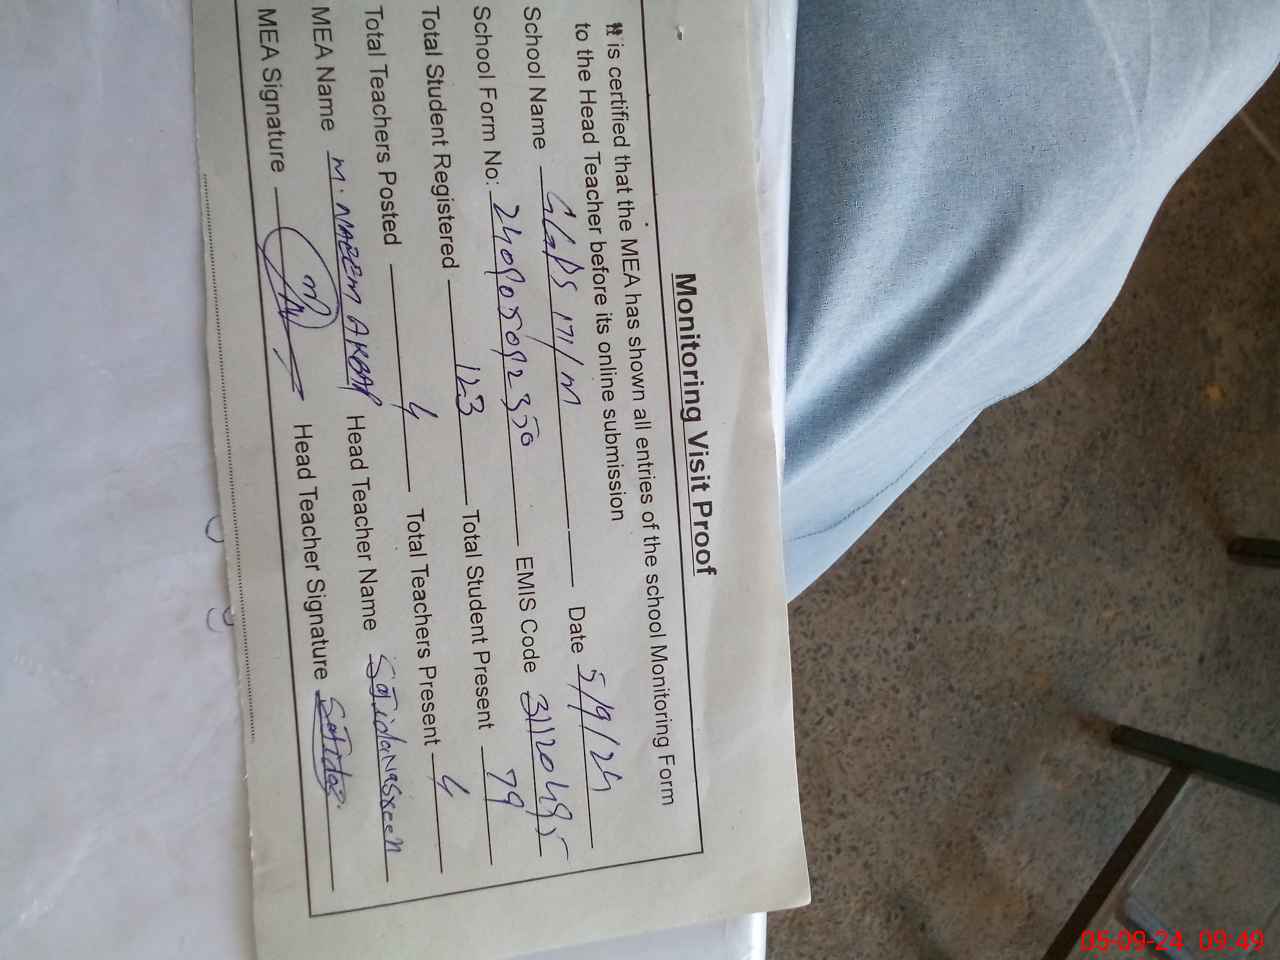 Monitoring Visit Proof
It is certified that the MEA has shown all entries of the school Monitoring Form
to the Head Teacher before its online submission
School Name GGPS 171/M Date 5/9/24
School Form No: EMIS Code 31120495
Total Student Registered 123 Total Student Present 79
Total Teachers Posted 4 Total Teachers Present 4
MEA Name M. NAEEM AKBAR Head Teacher Name Sajida Nasreen
MEA Signature Head Teacher Signature Sajida
05-09-24 09:49